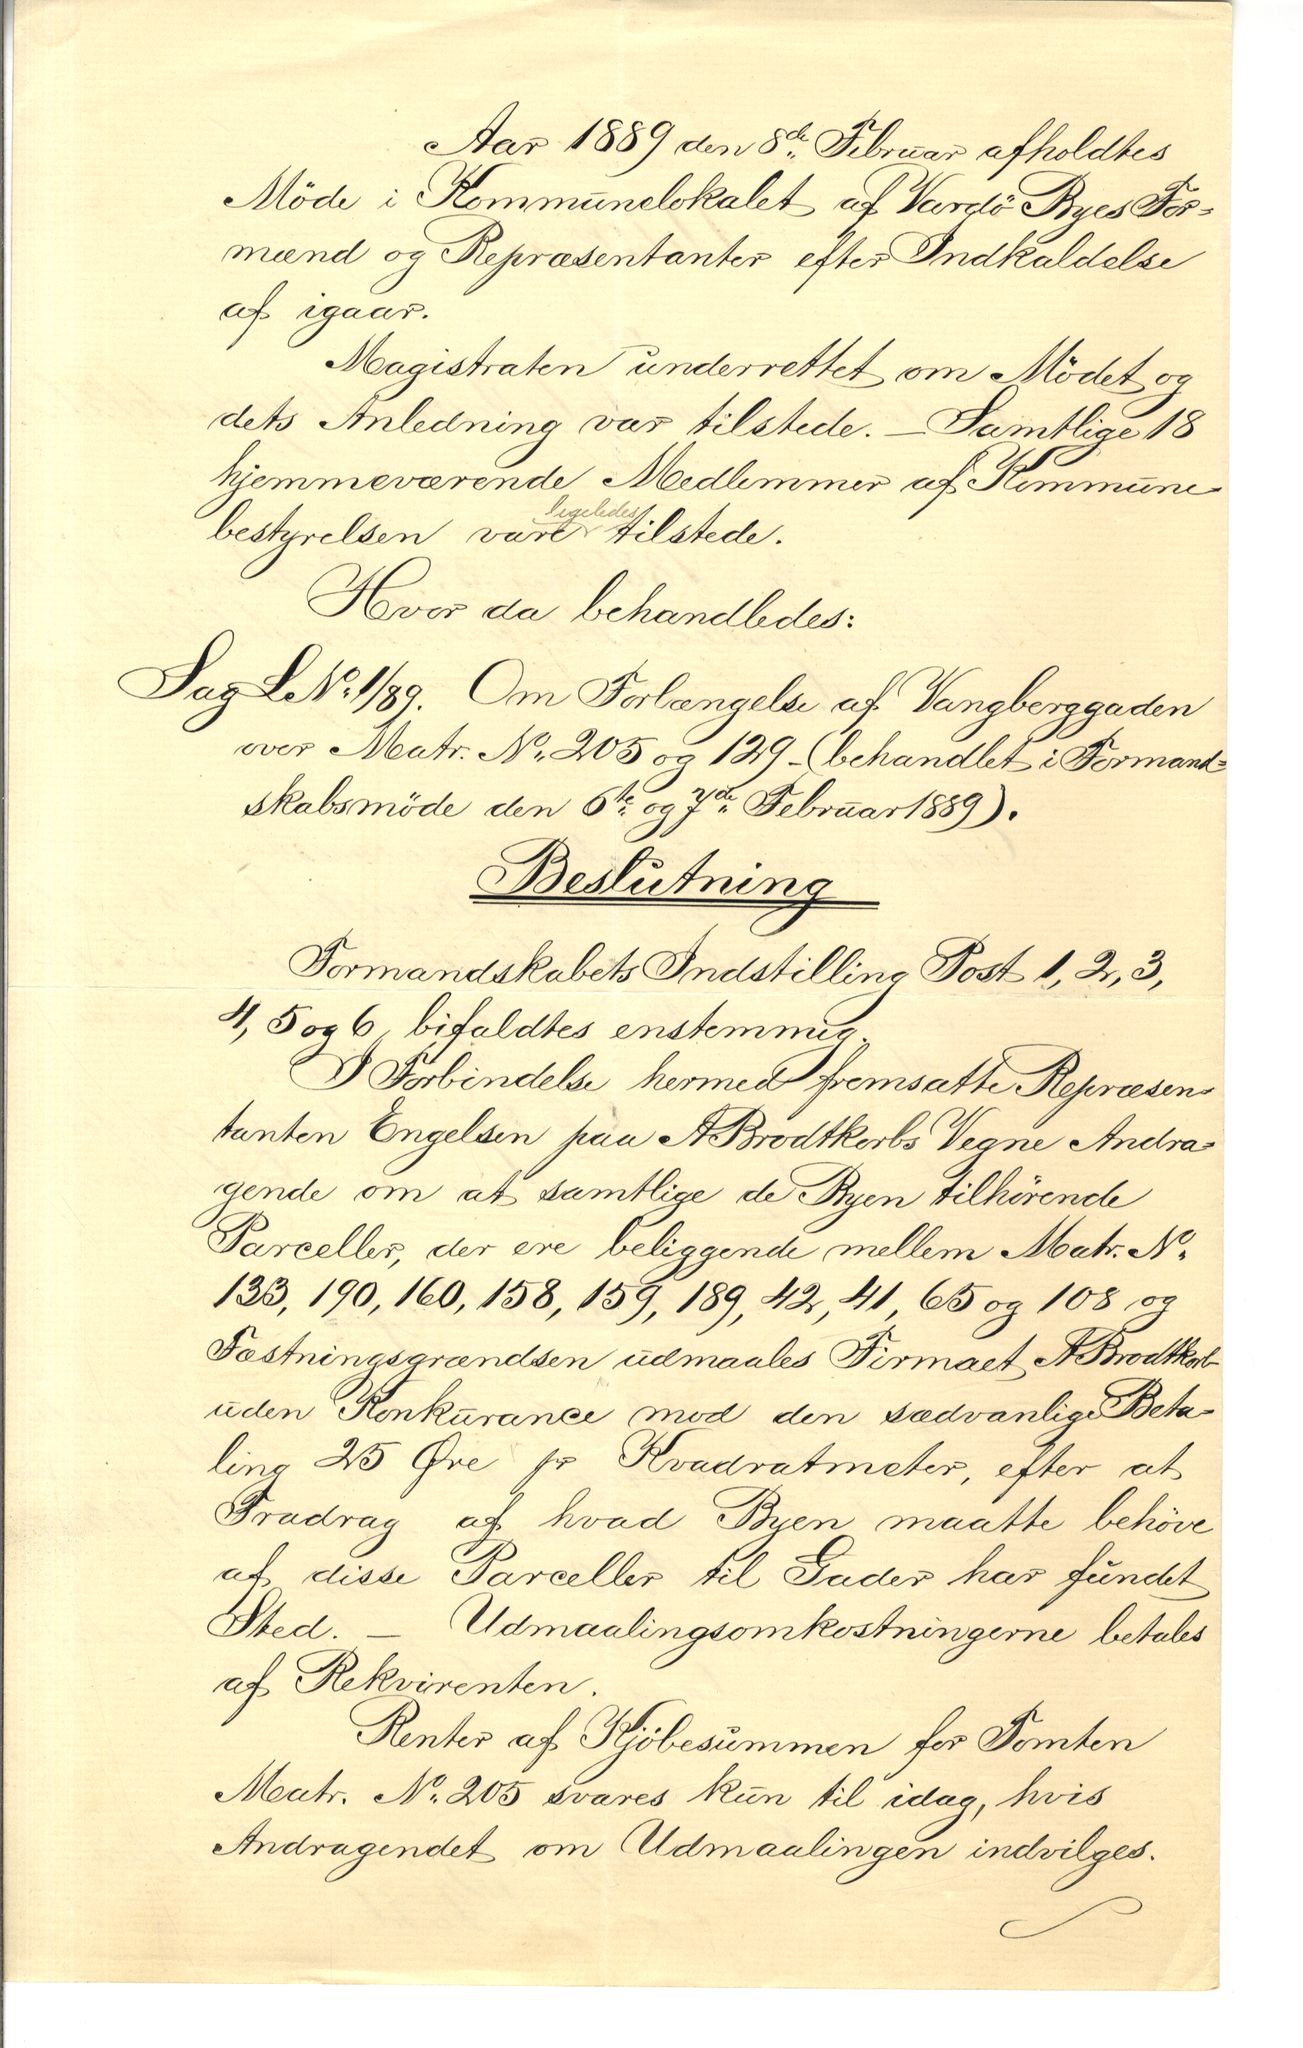 Aar 1889 den 8de Februar afholdtes
Möde i Kommunelokalet af Vardö Byes For=
mænd og Repræsentanter efter Indkaldelse
af igaar.
Magistraten underrettet om Mödet og
dets Anledning var tilstede. — Samtlige 18
hjemmeværende Medlemmer af Kommune-
ligeledes
bestyrelsen vare tilstede.
Hvor da behandledes:
Sag L. No. 1/89. Om Forlængelse af Vangberggaden
over Matr. No. 205 og 129 - (behandlet i Formand=
skabsmöde den 6te og 7de Februar 1889).
Beslutning
Formandskabets Indstilling Post 1, 2, 3,
4, 5 og 6, bifaldtes enstemmig.
I Forbindelse hermed fremsatte Repræsen=
tanten Engelsen paa A Brodtkorbs Vegne Andra=
gende om at samtlige de Byen tilhörende
Parceller, der ere beliggende mellem Matr. No.
133, 190, 160, 158, 159, 189, 42, 41, 65 og 108 og
Fæstningsgrændsen udmaales Firmaet A Brodtkorb
uden Konkurance mod den sædvanlige Beta-
ling 25 Øre pr Kvadratmeter, efter at
Fradrag af hvad Byen maatte behöve
af disse Parceller til Gader har fundet
Sted. — Udmaalingsomkostningerne betales
af Rekvirenten.
Renter af Kjöbesummen for Tomten
Matr. No. 205 svares kun til idag, hvis
Andragendet om Udmaalingen indvilges.